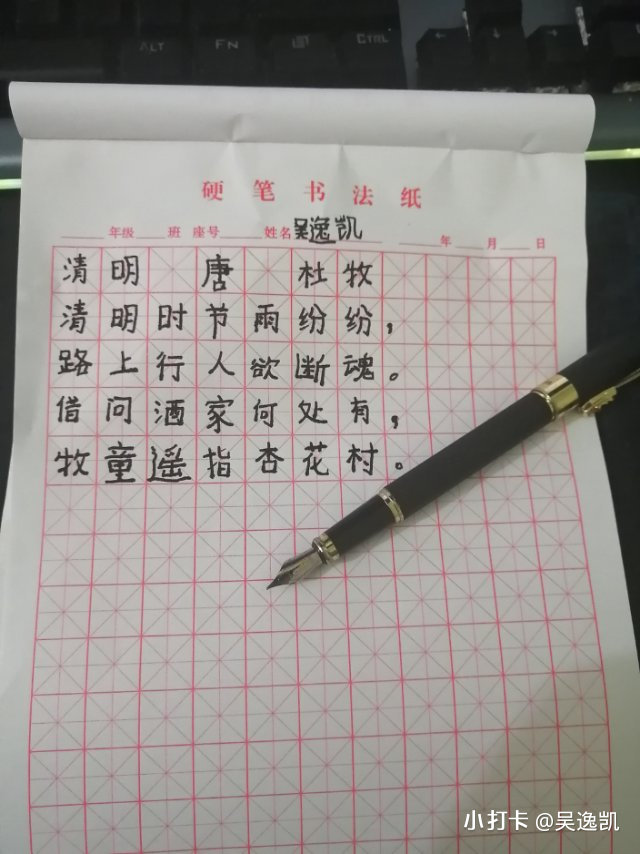 ALT FN CTRL
硬笔书法纸
年级 班 座号 姓名 吴逸凯 年 月 日
清明 唐 杜牧
清明时节雨纷纷，
路上行人欲断魂。
借问酒家何处有，
牧童遥指杏花村。
小打卡 @吴逸凯